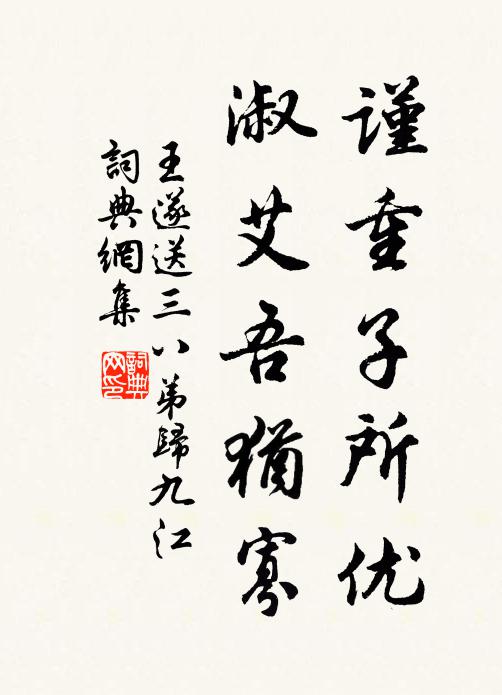 謹重子所优
淑艾吾猶寡
王遂送三八弟歸九江
詞典網集
詞典网印